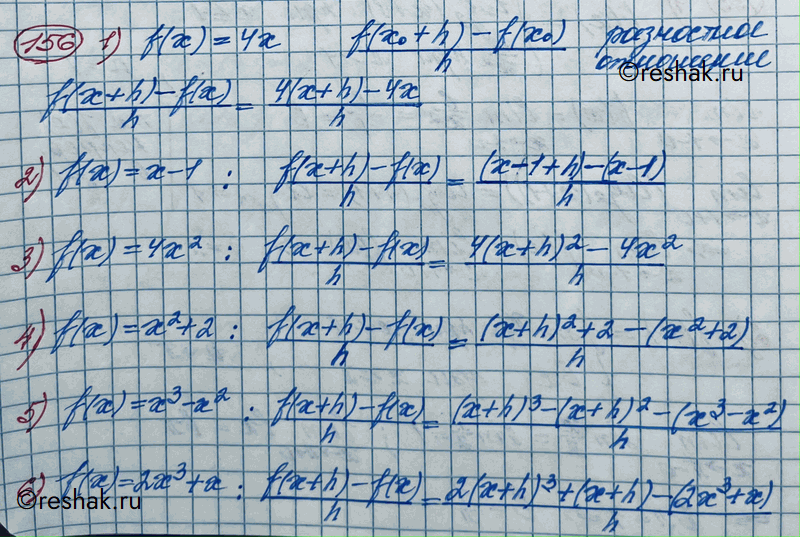 156 1) f(x) = 4x (f(x₀+h) − f(x₀))/h разностное
отношение
©reshak.ru
(f(x+h) − f(x))/h = (4(x+h) − 4x)/h
2) f(x) = x−1 : (f(x+h) − f(x))/h = ((x−1+h) − (x−1))/h
3) f(x) = 4x² : (f(x+h) − f(x))/h = (4(x+h)² − 4x²)/h
4) f(x) = x²+2 : (f(x+h) − f(x))/h = ((x+h)²+2 − (x²+2))/h
5) f(x) = x³−x² : (f(x+h) − f(x))/h = ((x+h)³ − (x+h)² − (x³−x²))/h
6) f(x) = 2x³+x : (f(x+h) − f(x))/h = (2(x+h)³+(x+h) − (2x³+x))/h
©reshak.ru